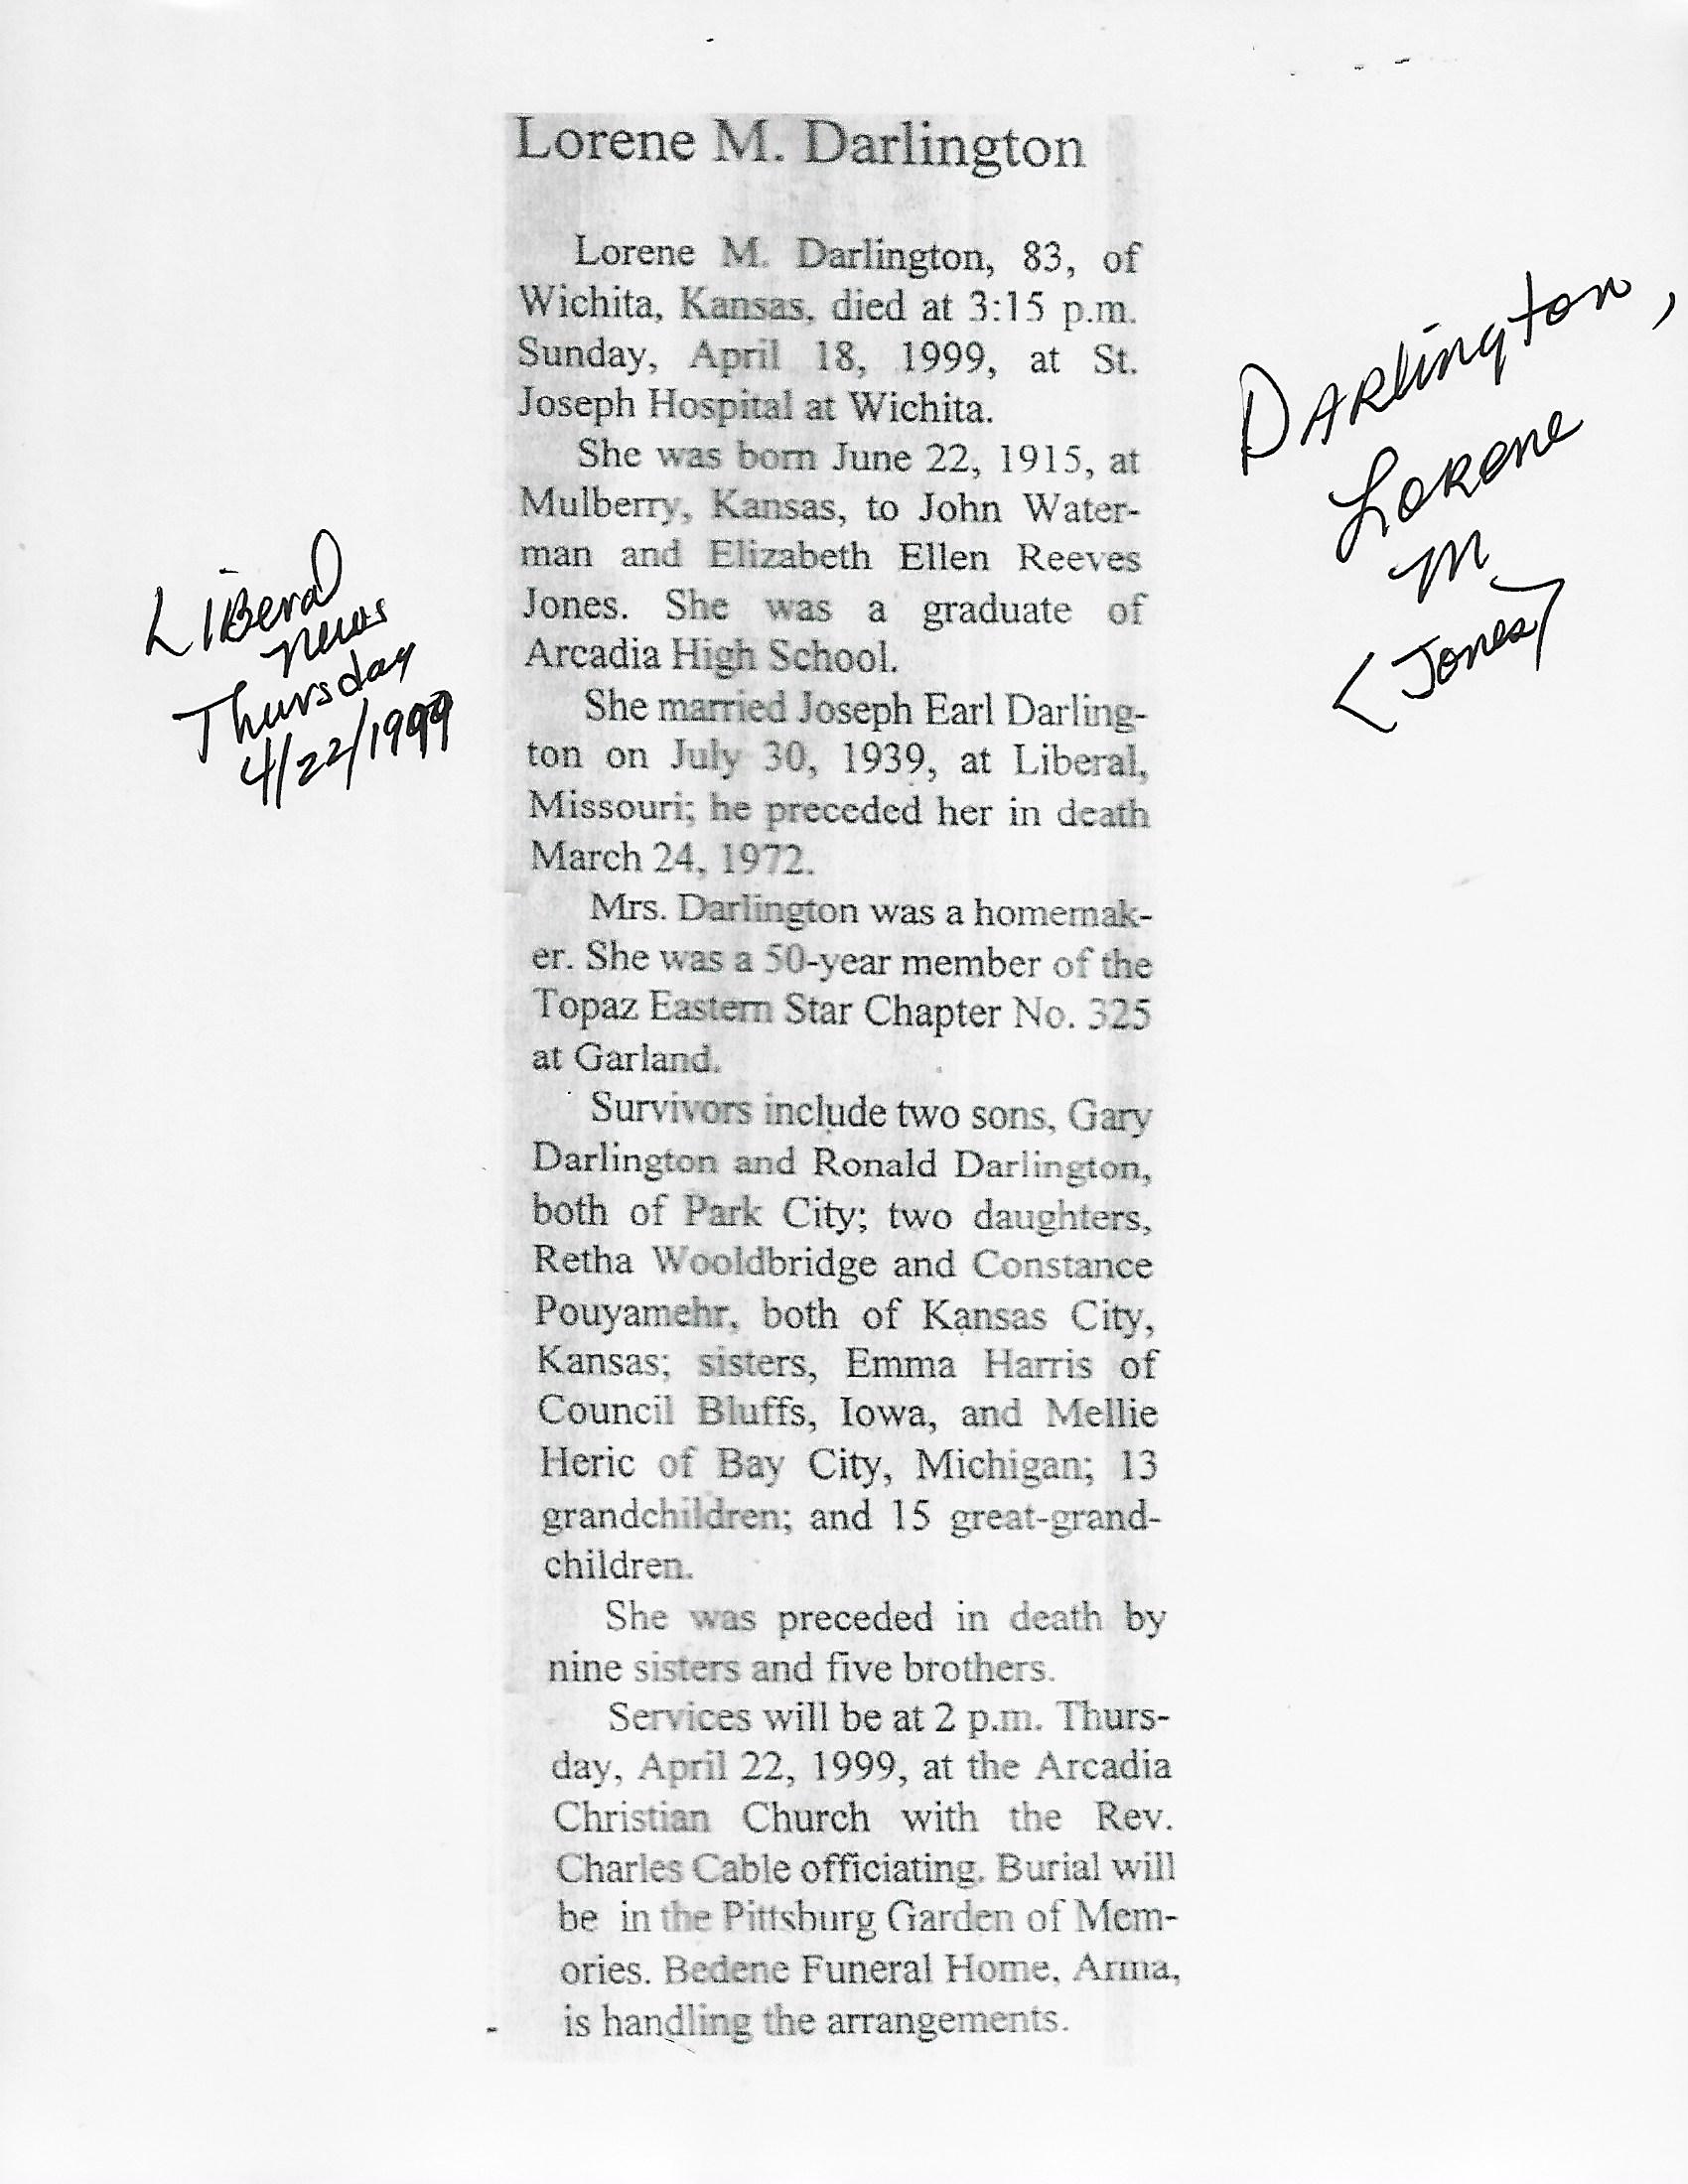 Lorene M. Darlington
Lorene M. Darlington, 83, of
Wichita, Kansas, died at 3:15 p.m.
Sunday, April 18, 1999, at St.
Joseph Hospital at Wichita.
She was born June 22, 1915, at
Mulberry, Kansas, to John Water-
man and Elizabeth Ellen Reeves
Jones. She was a graduate of
Arcadia High School.
She married Joseph Earl Darling-
ton on July 30, 1939, at Liberal,
Missouri; he preceded her in death
March 24, 1972.
Mrs. Darlington was a homemak-
er. She was a 50-year member of the
Topaz Eastern Star Chapter No. 325
at Garland.
Survivors include two sons, Gary
Darlington and Ronald Darlington,
both of Park City; two daughters,
Retha Wooldbridge and Constance
Pouyamehr, both of Kansas City,
Kansas; sisters, Emma Harris of
Council Bluffs, Iowa, and Mellie
Heric of Bay City, Michigan; 13
grandchildren; and 15 great-grand-
children.
She was preceded in death by
nine sisters and five brothers.
Services will be at 2 p.m. Thurs-
day, April 22, 1999, at the Arcadia
Christian Church with the Rev.
Charles Cable officiating. Burial will
be in the Pittsburg Garden of Mem-
ories. Bedene Funeral Home, Arma,
is handling the arrangements.
Liberal
News
Thursday
4/22/1999
Darlington,
Lorene
M
<Jones>